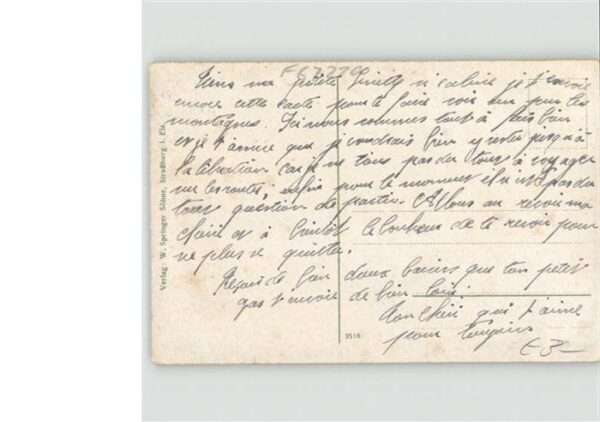 F67770
Tiens ma petite Ginetty si caline je t'envoie
encore cette carte pour te faire voir un peu les
montagnes. Ici nous sommes tout à fais bien
et je t'assure que je voudrais bien y rester jusqu'à
la libération car je ne tiens pas du tous à voyager
sur les routes; enfin pour le moment il n'est pas du
tous question de partir. Allons au revoir ma
chérie et à bientôt le bonheur de te revoir pour
ne plus se quitter.
Reçois de bien doux baisers que ton petit
gas t'envoie de bien loin.
Ton Chéri qui t'aime
pour toujours
E B
Verlag: W. Springer Söhne, Straßburg i. Els.
9516